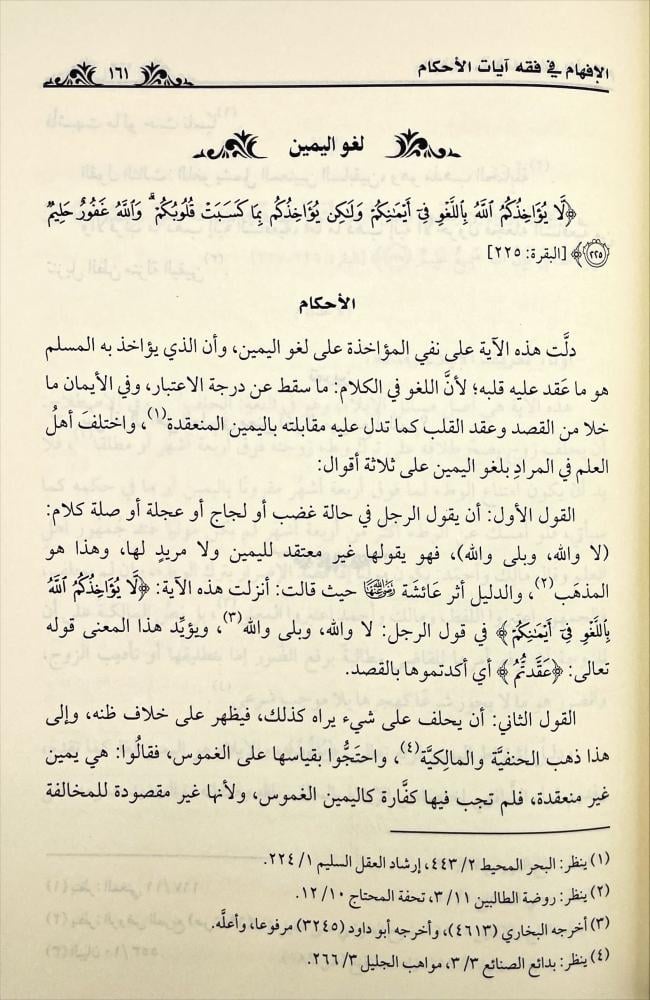 الإفهام في فقه آيات الأحكام
١٦١
لغو اليمين
﴿لَّا يُؤَاخِذُكُمُ ٱللَّهُ بِٱللَّغْوِ فِىٓ أَيْمَٰنِكُمْ وَلَٰكِن يُؤَاخِذُكُم بِمَا كَسَبَتْ قُلُوبُكُمْ ۗ وَٱللَّهُ غَفُورٌ حَلِيمٌ
(٢٢٥)﴾ [البقرة: ٢٢٥]
الأحكام
دلَّت هذه الآية على نفي المؤاخذة على لغو اليمين، وأن الذي يؤاخذ به المسلم
هو ما عَقد عليه قلبه؛ لأنَّ اللغو في الكلام: ما سقط عن درجة الاعتبار، وفي الأيمان ما
خلا من القصد وعقد القلب كما تدل عليه مقابلته باليمين المنعقدة(١)، واختلفَ أهلُ
العلم في المرادِ بلغو اليمين على ثلاثة أقوال:
القول الأول: أن يقول الرجل في حالة غضب أو لجاج أو عجلة أو صلة كلام:
(لا والله، وبلى والله)، فهو يقولها غير معتقد لليمين ولا مريدٍ لها، وهذا هو
المذهَب(٢)، والدليل أثر عَائشَة رضي الله عنها حيث قالت: أنزلت هذه الآية: ﴿لَّا يُؤَاخِذُكُمُ ٱللَّهُ
بِٱللَّغْوِ فِىٓ أَيْمَٰنِكُمْ﴾ في قول الرجل: لا والله، وبلى والله(٣)، ويؤيِّد هذا المعنى قوله
تعالى: ﴿عَقَّدتُّمُ﴾ أي أكدتموها بالقصد.
القول الثاني: أن يحلف على شيء يراه كذلك، فيظهر على خلاف ظنه، وإلى
هذا ذهب الحنفيَّة والمالِكيَّة(٤)، واحتجُّوا بقياسها على الغموس، فقالُوا: هي يمين
غير منعقدة، فلم تجب فيها كفَّارة كاليمين الغموس، ولأنها غير مقصودة للمخالفة
(١) ينظر: البحر المحيط ٢/ ٤٤٣، إرشاد العقل السليم ١/ ٢٢٤.
(٢) ينظر: روضة الطالبين ١١/ ٣، تحفة المحتاج ١٠/ ١٢.
(٣) أخرجه البخاري (٤٦١٣)، وأخرجه أبو داود (٣٢٤٥) مرفوعا، وأعلَّه.
(٤) ينظر: بدائع الصنائع ٣/ ٣، مواهب الجليل ٣/ ٢٦٦.